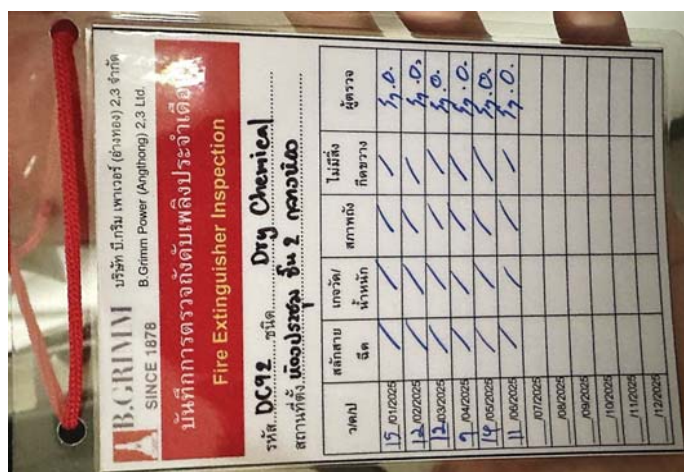 B.GRIMM
SINCE 1878
บริษัท บี.กริม เพาเวอร์ (อ่างทอง) 2,3 จำกัด
B.Grimm Power (Angthong) 2,3 Ltd.
บันทึกการตรวจถังดับเพลิงประจำเดือน
Fire Extinguisher Inspection
รหัส...DC92...ชนิด...Dry Chemical
สถานที่ตั้ง.ห้องประชุม ชั้น 2
ว/ด/ป สลักสาย ฉีด เกจวัด/ น้ำหนัก สภาพถัง ไม่มีสิ่ง กีดขวาง ผู้ตรวจ
15/01/2025 / / / /
12/02/2025 / / / /
12/03/2025 / / / /
9/04/2025 / / / /
14/05/2025 / / / /
11/06/2025 / / / /
/07/2025
/08/2025
/09/2025
/10/2025
/11/2025
/12/2025